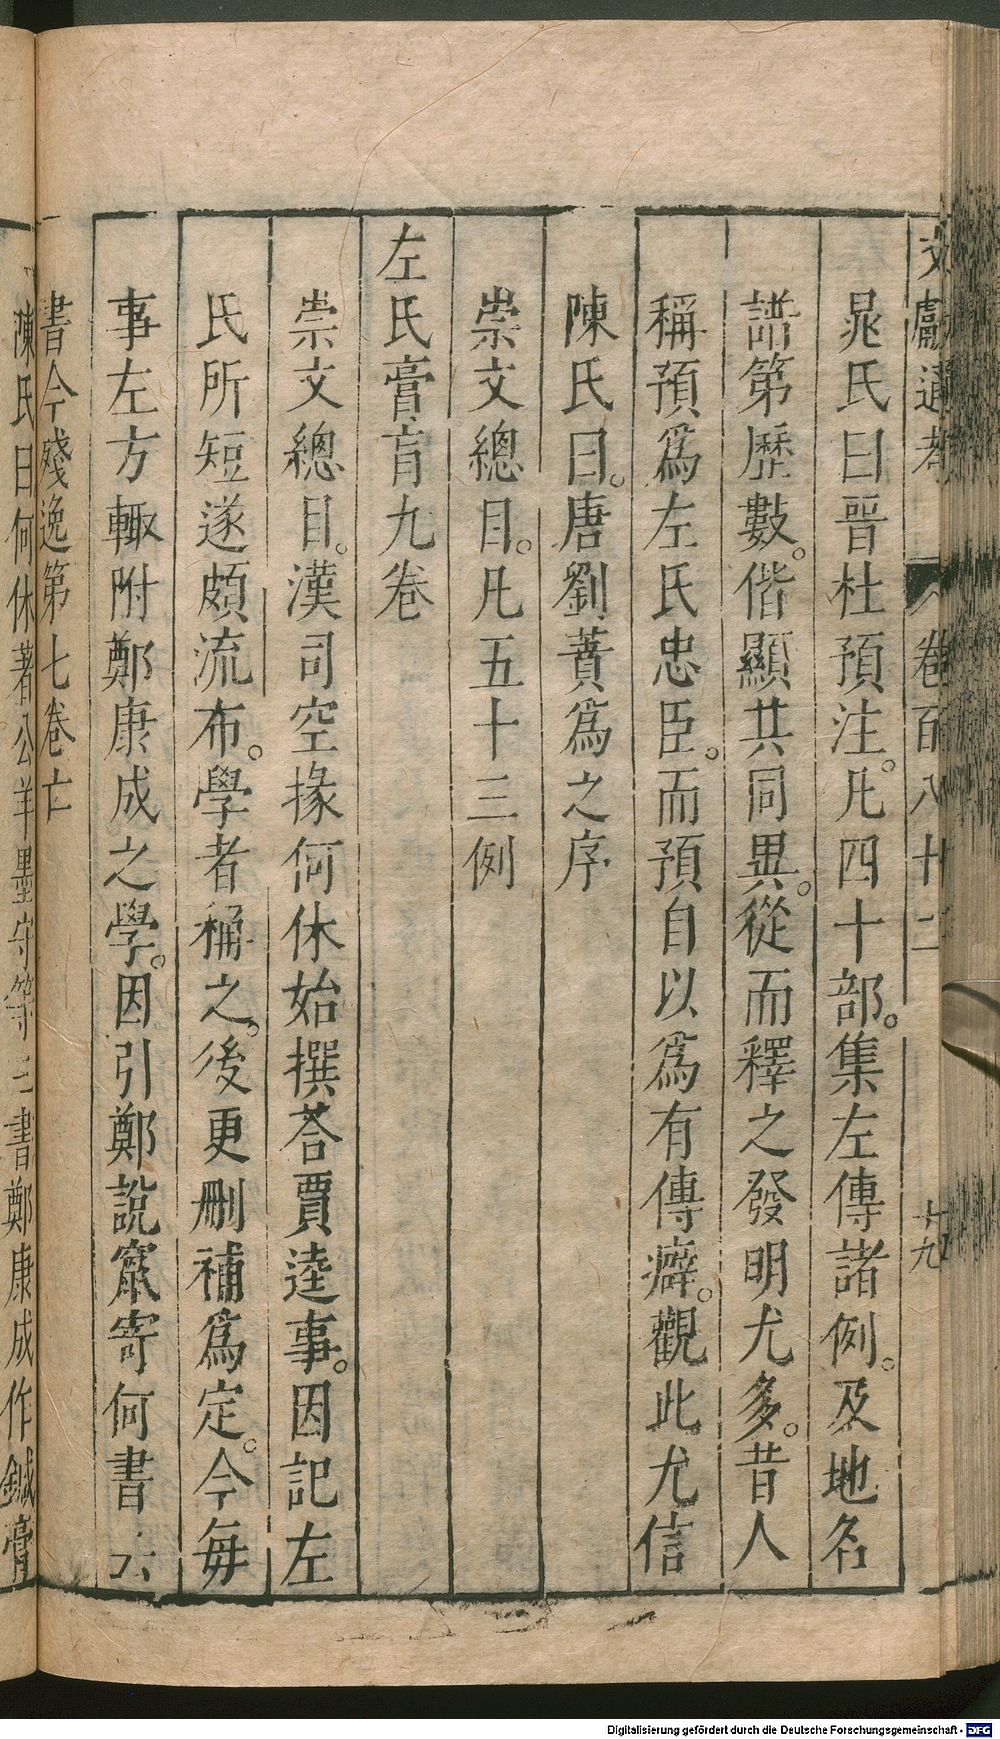 文獻通考 卷百八十二 十九
晁氏曰晉杜預注。凡四十部。集左傳諸例。及地名
譜第歷數。偕顯其同異。從而釋之發明尤多。昔人
稱預爲左氏忠臣。而預自以爲有傳癖。觀此尤信
陳氏曰。唐劉蕡爲之序
崇文總目。凡五十三例
左氏膏肓九卷
崇文總目。漢司空掾何休始撰荅賈逵事。因記左
氏所短遂頗流布。學者稱之。後更刪補爲定。今每
事左方輙附鄭康成之學。因引鄭說竄寄何書
書今殘逸第七卷亡
陳氏曰何休著公羊墨守等三書鄭康成作鍼膏
Digitalisierung gefördert durch die Deutsche Forschungsgemeinschaft - DFG